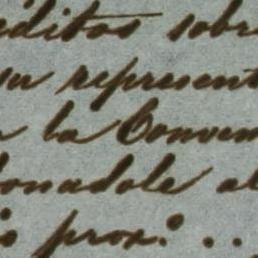 éditos sobre
su represent
a la Conven
donadole al
io prox.º ..